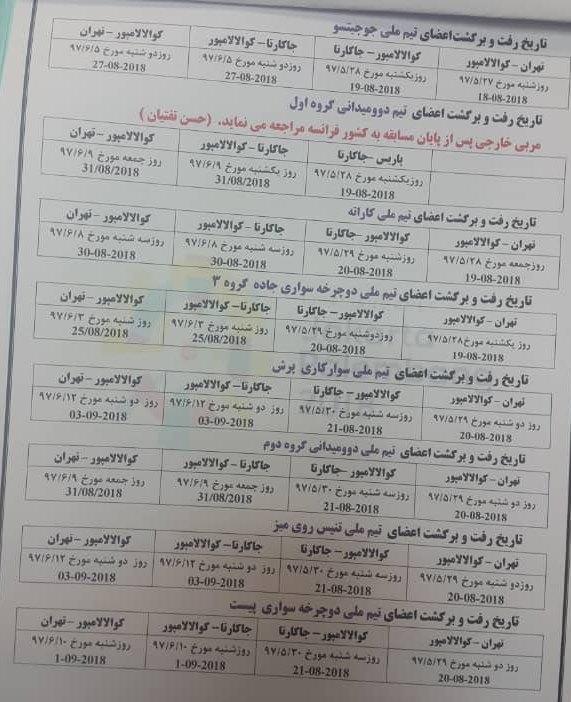 تاریخ رفت و برگشت اعضای تیم ملی جوجیتسو
تهران – کوالالامپور	کوالالامپور – جاکارتا	جاکارتا – کوالالامپور	کوالالامپور – تهران
روزشنبه مورخ ۹۷/۵/۲۷	روزیکشنبه مورخ ۹۷/۵/۲۸	روزدو شنبه مورخ ۹۷/۶/۵	روزدو شنبه مورخ ۹۷/۶/۵
18-08-2018	19-08-2018	27-08-2018	27-08-2018
تاریخ رفت و برگشت اعضای تیم دوومیدانی گروه اول
مربی خارجی پس از پایان مسابقه به کشور فرانسه مراجعه می نماید. (حسن تفتیان )
پاریس – جاکارتا	جاکارتا – کوالالامپور	کوالالامپور – تهران
روزیکشنبه مورخ ۹۷/۵/۲۸	روز یکشنبه مورخ ۹۷/۶/۹	روز جمعه مورخ ۹۷/۶/۹
19-08-2018	31/08/2018	31/08/2018
تاریخ رفت و برگشت اعضای تیم ملی کاراته
تهران – کوالالامپور	کوالالامپور – جاکارتا	جاکارتا – کوالالامپور	کوالالامپور – تهران
روزجمعه مورخ ۹۷/۵/۲۸	روزدو شنبه مورخ ۹۷/۵/۲۹	روزسه شنبه مورخ ۹۷/۶/۸	روزسه شنبه مورخ ۹۷/۶/۸
19-08-2018	20-08-2018	30-08-2018	30-08-2018
تاریخ رفت و برگشت اعضای تیم ملی دوچرخه سواری جاده گروه ۳
تهران – کوالالامپور	کوالالامپور – جاکارتا	جاکارتا – کوالالامپور	کوالالامپور – تهران
روز یکشنبه مورخ ۹۷/۵/۲۸	روزدوشنبه مورخ ۹۷/۵/۲۹	روز شنبه مورخ ۹۷/۶/۳	روز شنبه مورخ ۹۷/۶/۳
19-08-2018	20-08-2018	25/08/2018	25/08/2018
تاریخ رفت و برگشت اعضای تیم ملی سوارکاری پرش
تهران – کوالالامپور	کوالالامپور – جاکارتا	جاکارتا – کوالالامپور	کوالالامپور – تهران
روز دو شنبه مورخ ۹۷/۵/۲۹	روزسه شنبه مورخ ۹۷/۵/۳۰	روز دو شنبه مورخ ۹۷/۶/۱۲	روز دو شنبه مورخ ۹۷/۶/۱۲
20-08-2018	21-08-2018	03-09-2018	03-09-2018
تاریخ رفت و برگشت اعضای تیم ملی دوومیدانی گروه دوم
تهران – کوالالامپور	کوالالامپور – جاکارتا	جاکارتا – کوالالامپور	کوالالامپور – تهران
روز دو شنبه مورخ ۹۷/۵/۲۹	روزسه شنبه مورخ ۹۷/۵/۳۰	روز جمعه مورخ ۹۷/۶/۹	روز جمعه مورخ ۹۷/۶/۹
20-08-2018	21-08-2018	31/08/2018	31/08/2018
تاریخ رفت و برگشت اعضای تیم ملی تنیس روی میز
تهران – کوالالامپور	کوالالامپور – جاکارتا	جاکارتا – کوالالامپور	کوالالامپور – تهران
روزدو شنبه مورخ ۹۷/۵/۲۹	روزسه شنبه مورخ ۹۷/۵/۳۰	روز دو شنبه مورخ ۹۷/۶/۱۲	روز دو شنبه مورخ ۹۷/۶/۱۲
20-08-2018	21-08-2018	03-09-2018	03-09-2018
تاریخ رفت و برگشت اعضای تیم ملی دوچرخه سواری پیست
تهران – کوالالامپور	کوالالامپور – جاکارتا	جاکارتا – کوالالامپور	کوالالامپور – تهران
روز دو شنبه مورخ ۹۷/۵/۲۹	روزسه شنبه مورخ ۹۷/۵/۳۰	روزشنبه مورخ ۹۷/۶/۱۰	روزشنبه مورخ ۹۷/۶/۱۰
20-08-2018	21-08-2018	1-09-2018	1-09-2018